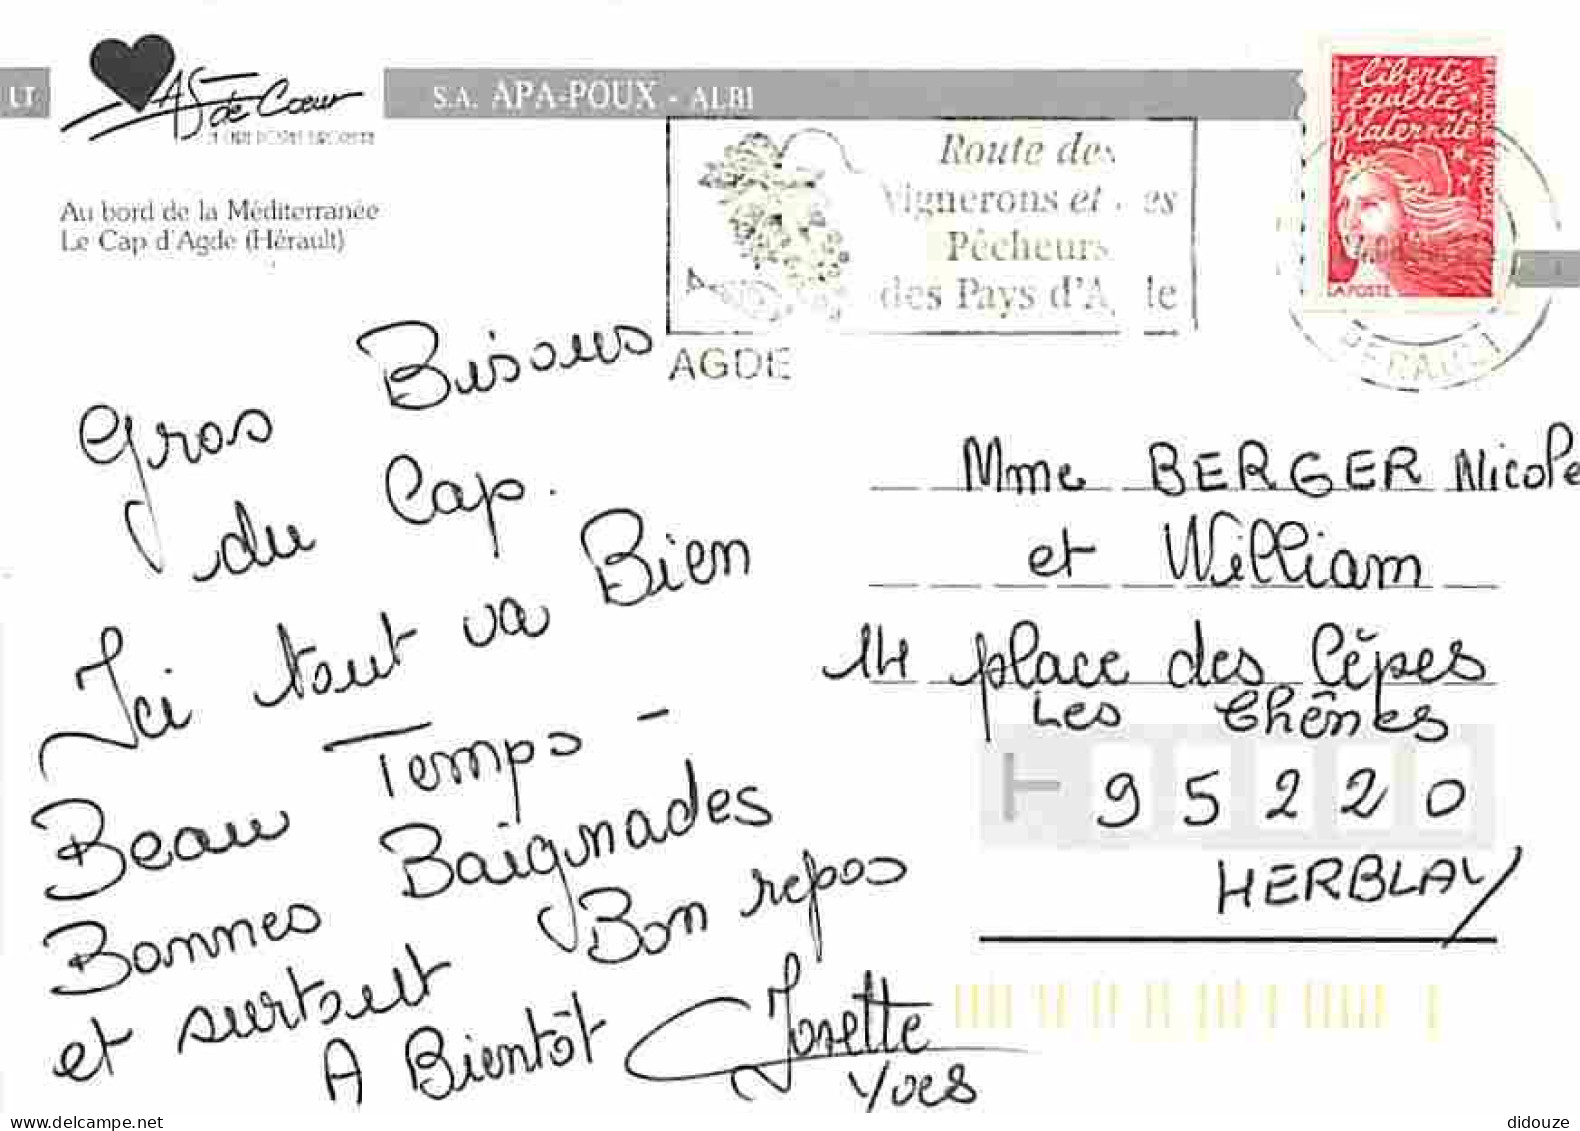 LT
AS de Cœur
S.A. APA-POUX - ALBI
Au bord de la Méditerranée
Le Cap d'Agde (Hérault)
Route des
Vignerons et des
Pêcheurs
des Pays d'Agde
AGDE
liberté
égalité
fraternité
LA POSTE
HERAULT
Gros Bisous
du Cap.
Ici tout va Bien
Beau Temps -
Bonnes Baignades
et surtout Bon repos
A Bientôt Josette
Yves
Mme BERGER Nicole
et William
14 place des Cêpes
Les Chênes
95220
HERBLAY
didouze